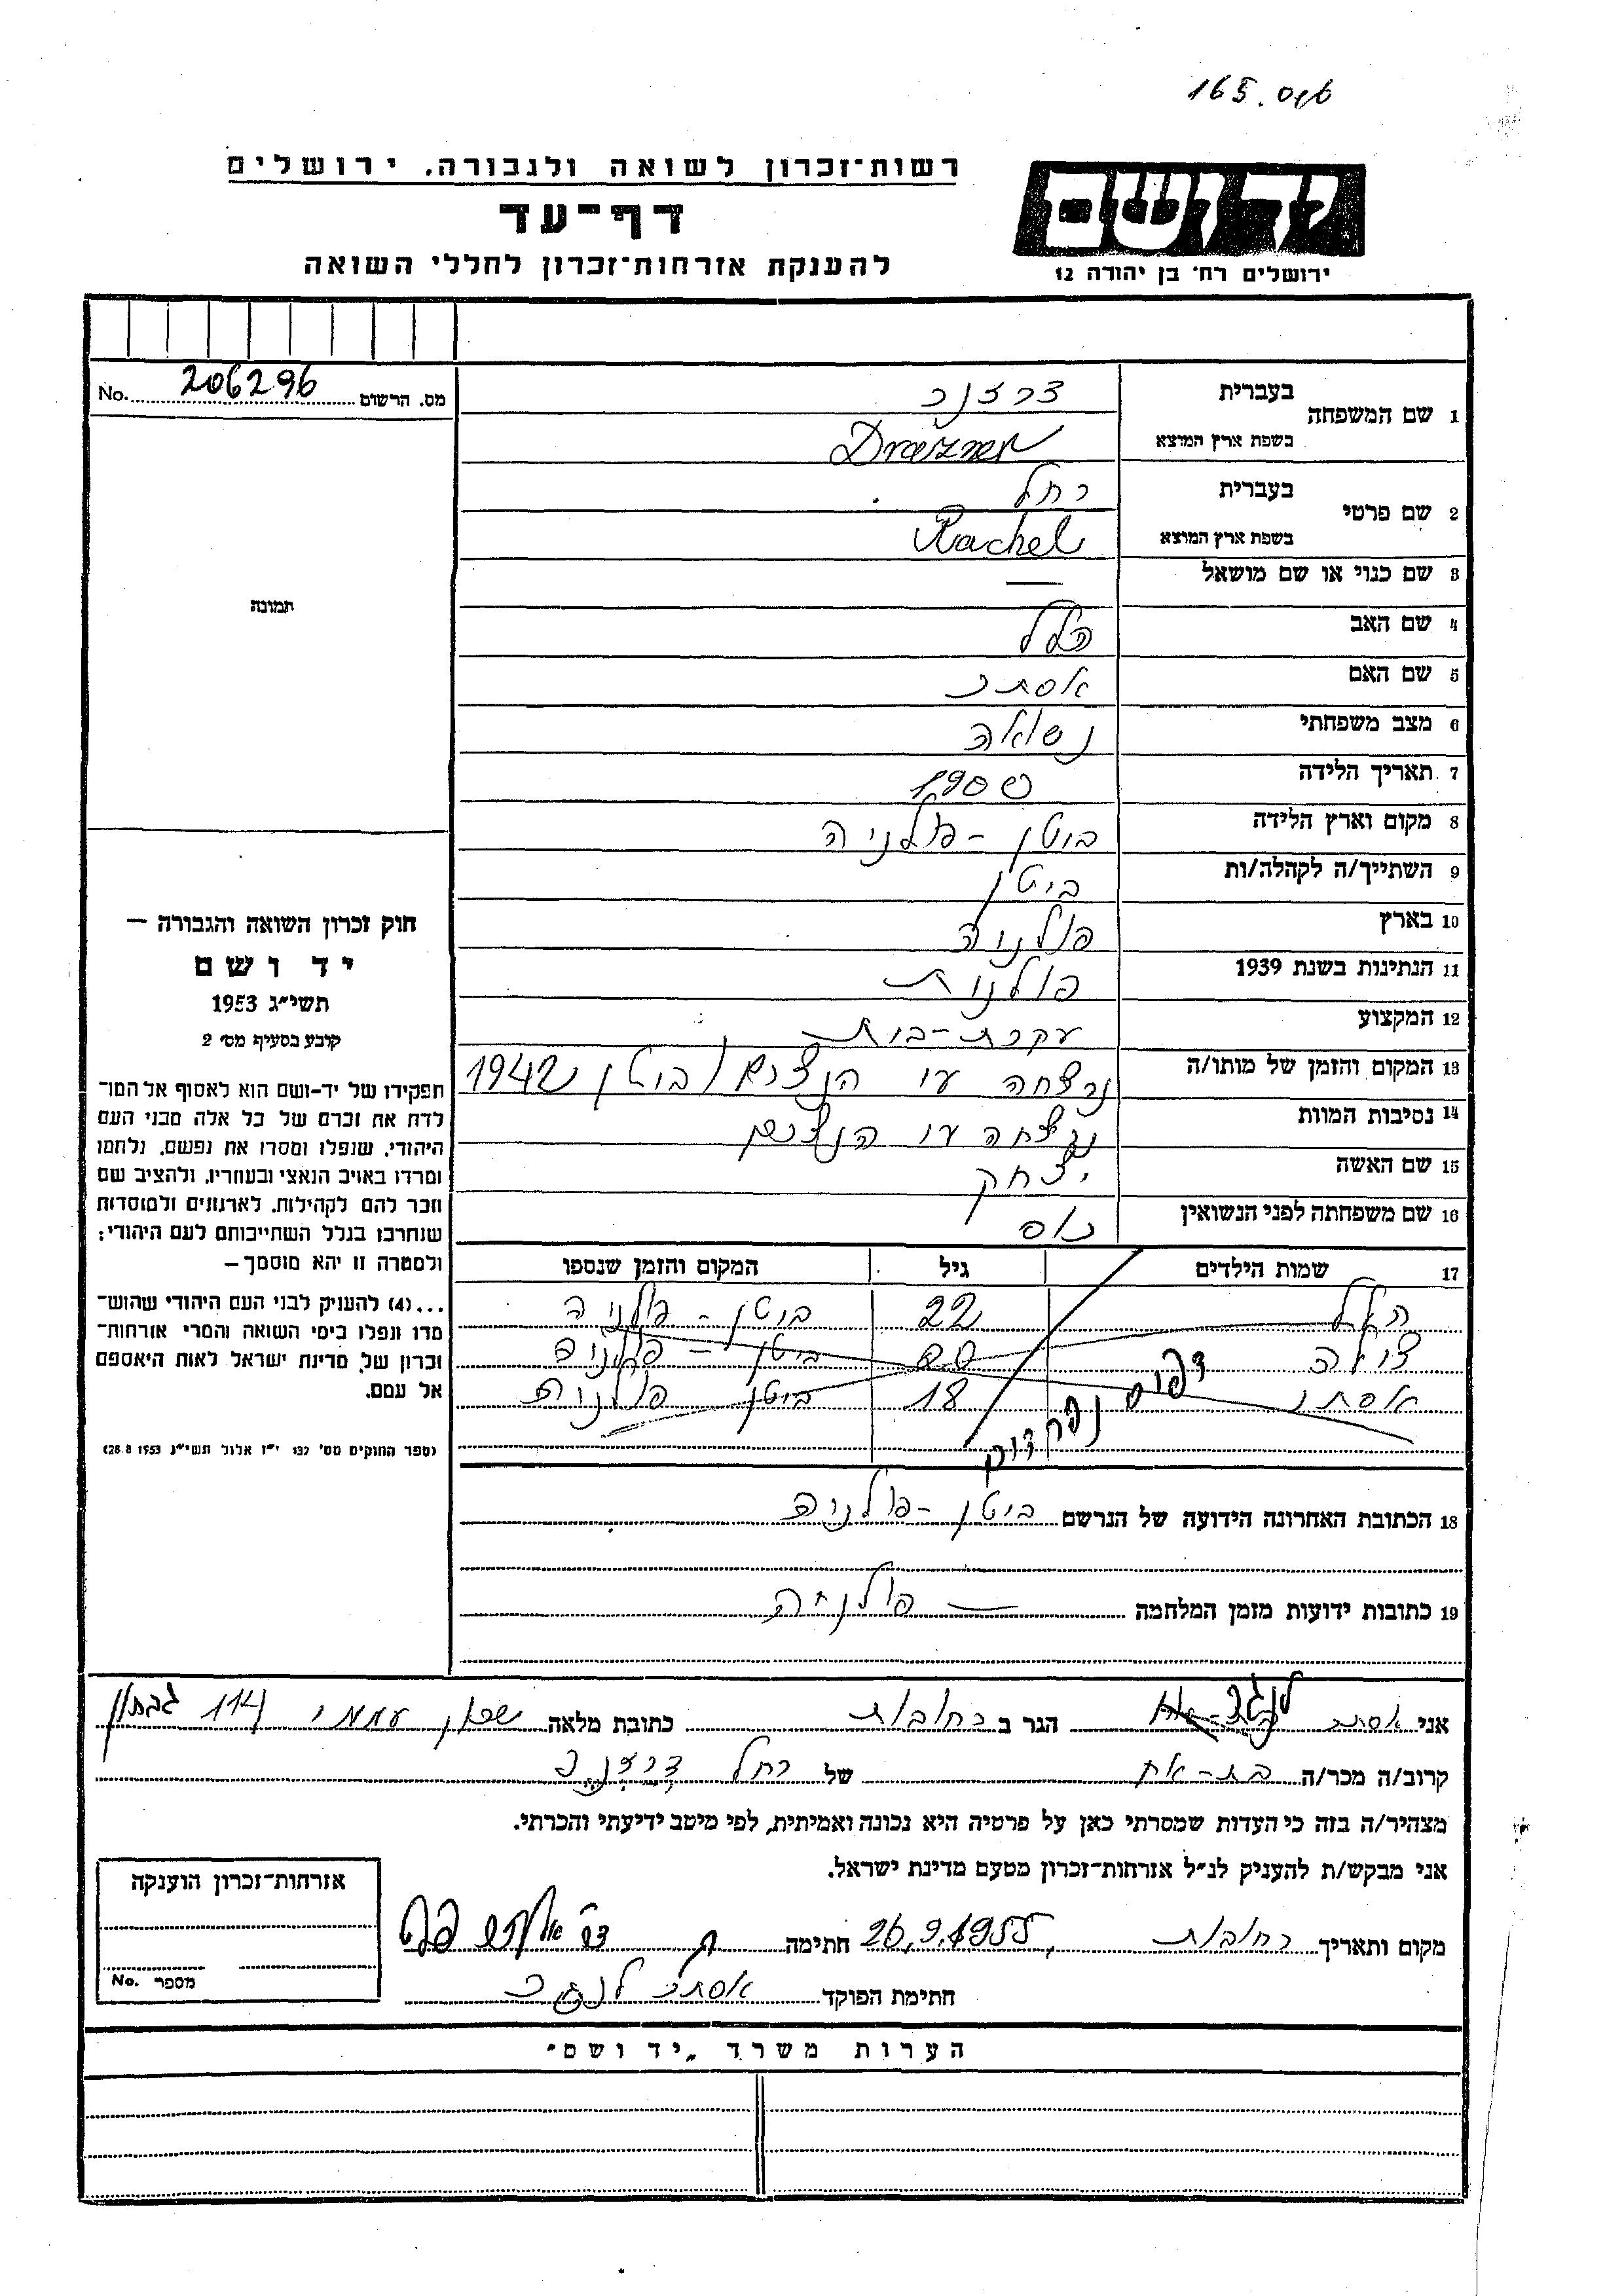 165.046
רשות־זכרון לשואה ולגבורה, ירושלים
דף־עד
להענקת אזרחות־זכרון לחללי השואה
יד ושם
ירושלים רח' בן יהודה 12
מס. הרשום 206296 No.
תמונה
חוק זכרון השואה והגבורה —
יד ושם
תשי״ג 1953
קובע בסעיף מס׳ 2
תפקידו של יד-ושם הוא לאסוף אל המו־
לדת את זכרם של כל אלה מבני העם
היהודי, שנפלו ומסרו את נפשם, נלחמו
ומרדו באויב הנאצי ובעוזריו, ולהציב שם
וזכר להם לקהילות, לארגונים ולמוסדות
שנחרבו בגלל השתייכותם לעם היהודי;
ולמטרה זו יהא מוסמך —
...(4) להעניק לבני העם היהודי שהוש־
מדו ונפלו בימי השואה והמרי אזרחות־
זכרון של מדינת ישראל לאות היאספם
אל עמם.
(ספר החוקים מס׳ 132 י״ז אלול תשי״ג 28.8.1953)
1 שם המשפחה בעברית דרזנר
בשפת ארץ המוצא Drezner
2 שם פרטי בעברית רחל
בשפת ארץ המוצא Rachel
3 שם כנוי או שם מושאל —
4 שם האב הלל
5 שם האם אסתר
6 מצב משפחתי נשואה
7 תאריך הלידה 1900
8 מקום וארץ הלידה ביטן - פולניה
9 השתייך/ה לקהלה/ות ביטן
10 בארץ פולניה
11 הנתינות בשנת 1939 פולנית
12 המקצוע עקרת-בית
13 המקום והזמן של מותו/ה נרצחה ע״י הנצים / ביטן 1942
14 נסיבות המוות נרצחה ע״י הנצים
15 שם האשה יצחק
16 שם משפחתה לפני הנשואין
17 שמות הילדים גיל המקום והזמן שנספו
הלל 22 ביטן - פולניה
20 ביטן - פולניה
אסתר 18 ביטן פולניה
דפים נפרדים
18 הכתובת האחרונה הידועה של הנרשם ביטן - פולניה
19 כתובות ידועות מזמן המלחמה — פולניה
אני אסתר הגר ב רחובות כתובת מלאה שכון עממי 114
קרוב/ה מכר/ה בת-אח של רחל דרזנר
מצהיר/ה בזה כי העדות שמסרתי כאן על פרטיה היא נכונה ואמיתית, לפי מיטב ידיעתי והכרתי.
אני מבקש/ת להעניק לנ״ל אזרחות־זכרון מטעם מדינת ישראל.
מקום ותאריך רחובות, 26.9.1955 חתימה
חתימת הפוקד אסתר לנגר
אזרחות־זכרון הוענקה
מספר No.
הערות משרד „יד ושם״